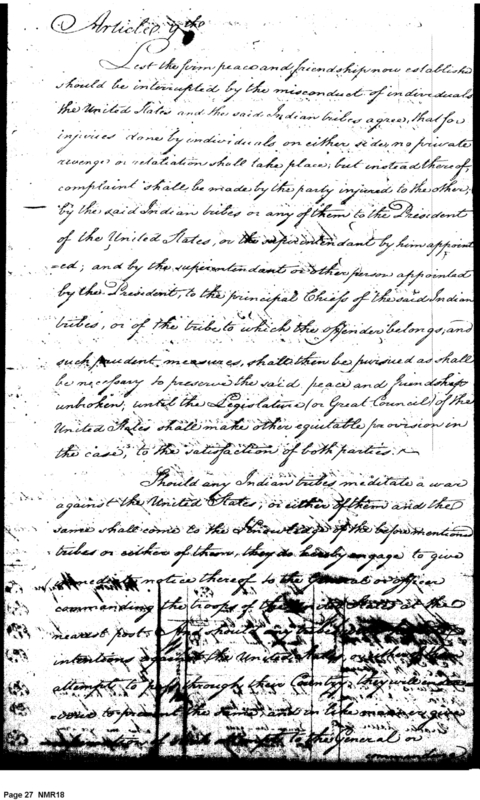 Article 9th
Lest the firm peace and friendship now established
should be interrupted by the misconduct of individuals
the United States and the said Indian tribes agree, that for
injuries done by individuals on either side, no private
revenge or retaliation shall take place; but instead thereof,
complaint shall be made by the party injured to the other;
by the said Indian tribes or any of them to the President
of the United States, or the superintendant by him appoint
-ed; and by the superintendant or other person appointed
by the President, to the principal Chiefs of the said Indian
tribes, or of the tribe to which the offender belongs, and
such prudent measures, shall then be pursued as shall
be necessary to preserve the said peace and friendship
unbroken, until the Legislature (or Great Council) of the
United States shall make other equitable provision in
the case, to the satisfaction of both parties.
Should any Indian tribes meditate a war
against the United States, or either of them and the
same shall come to the Knowledge of the before mentioned
tribes or either of them, they do hereby engage to give
immediate notice thereof to the General or officer
commanding the troops of the United States at the
nearest post. And should any tribe
intentions against the United States, or either of them
attempt to pass through their Country, they will endeav
-our to prevent the same, and in like manner give
information of such attempt, to the General or
commanding
Page 27 NMR18